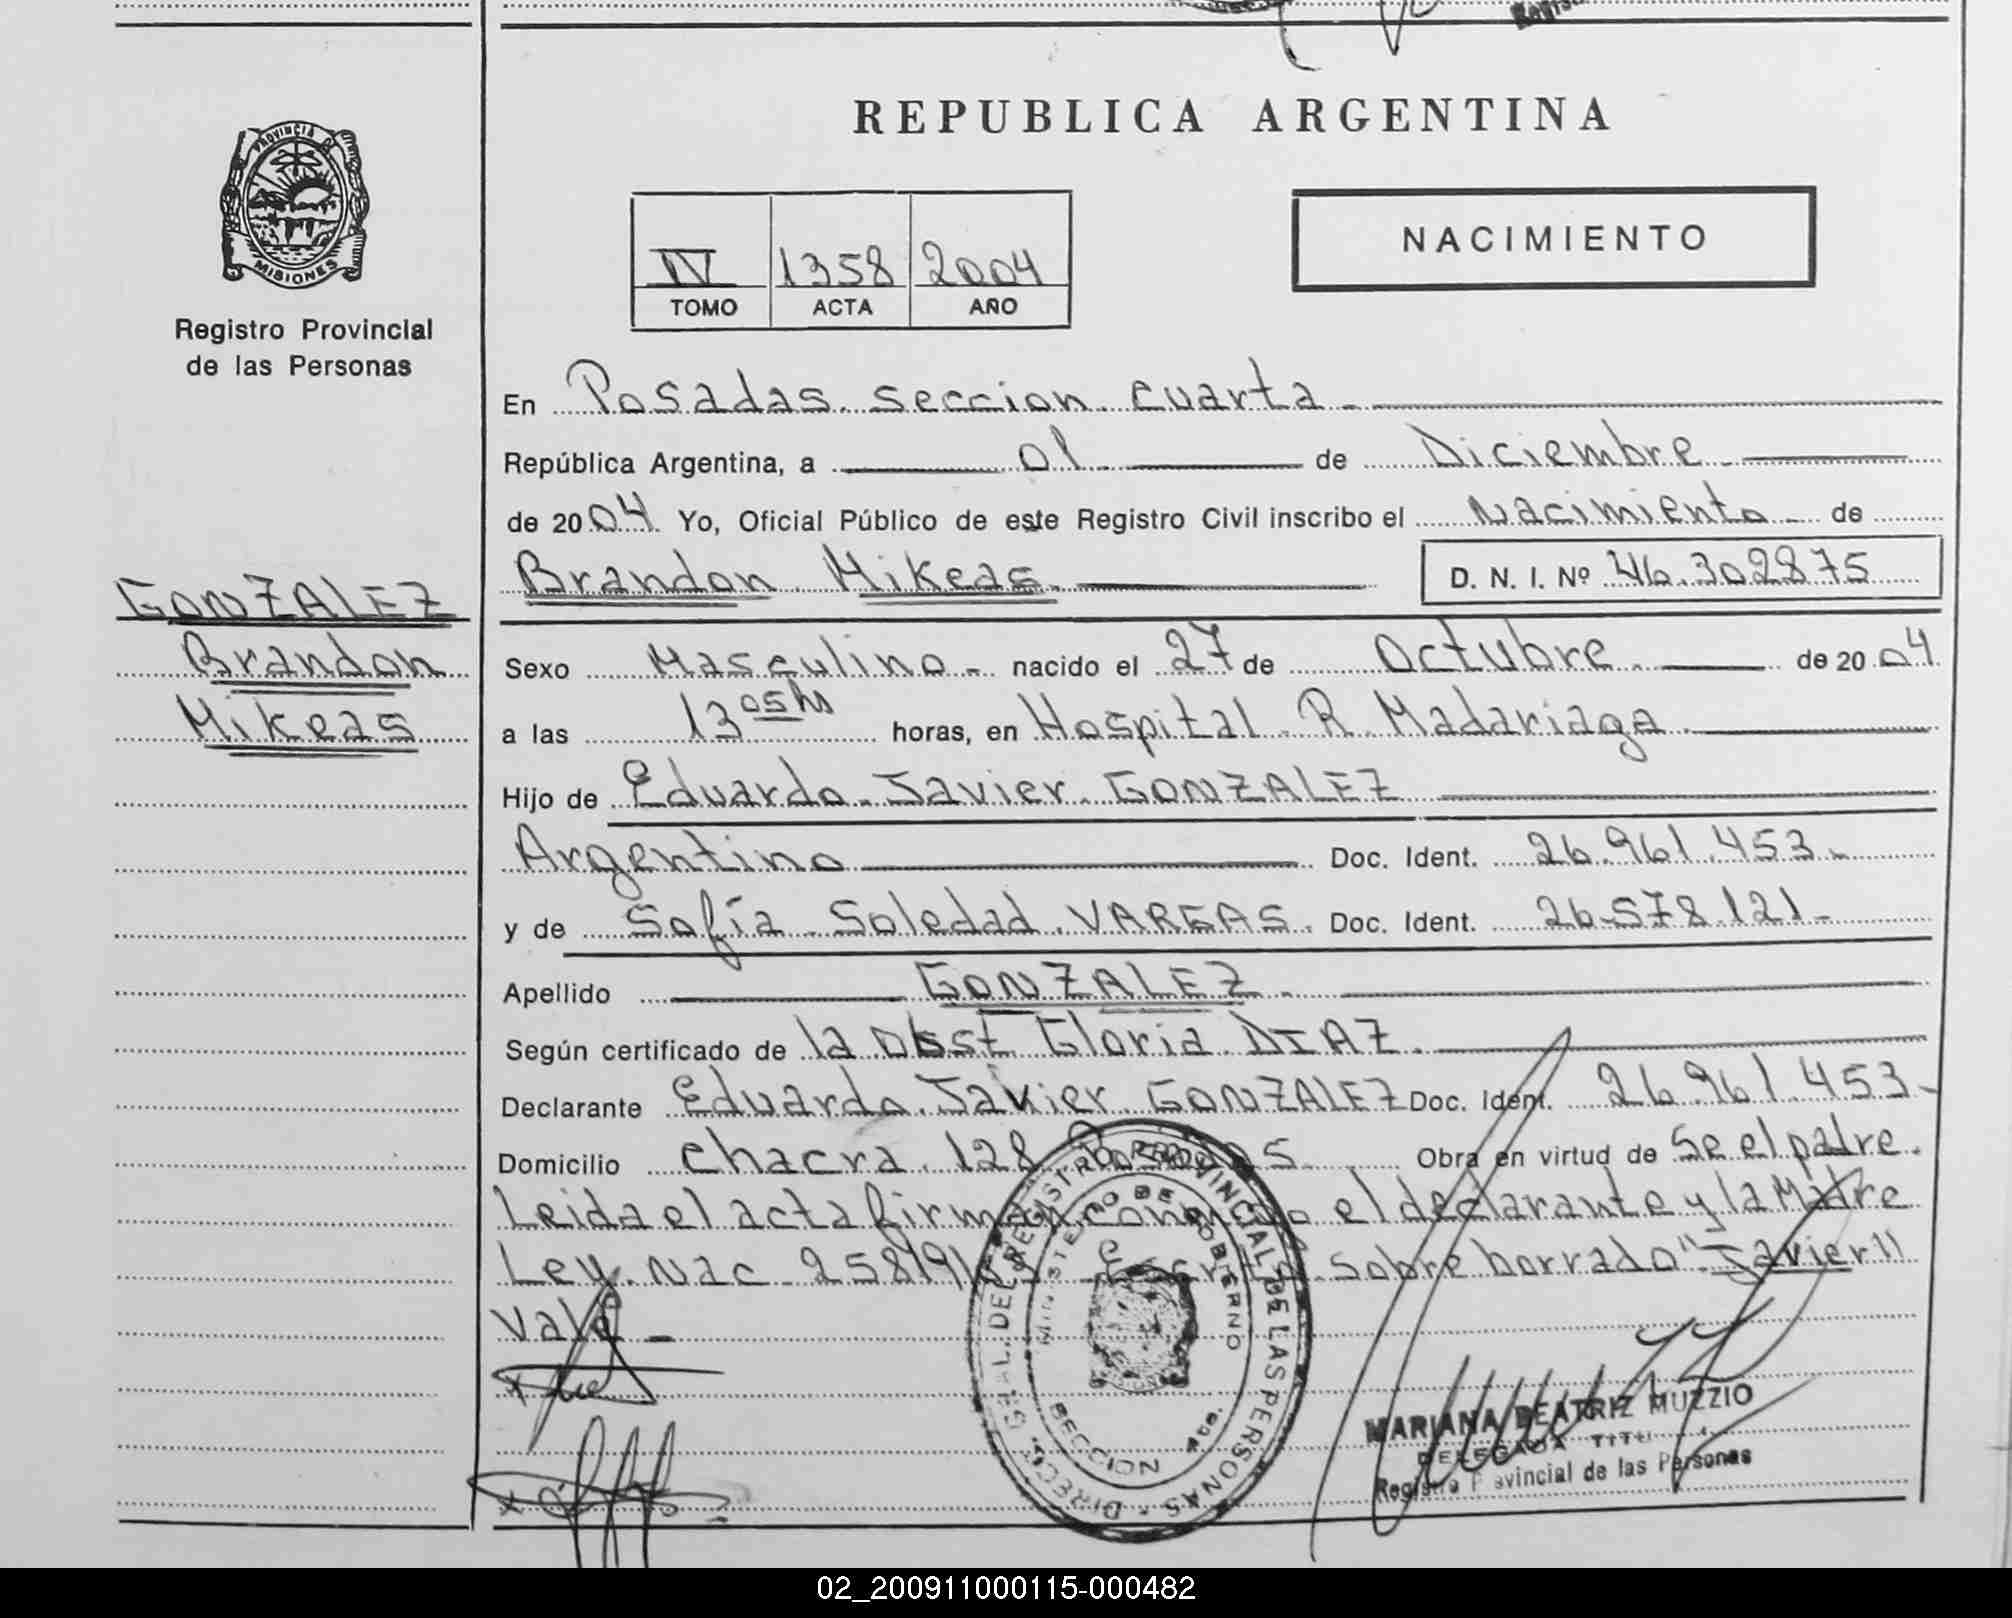 REPUBLICA ARGENTINA
PROVINCIA DE
MISIONES
Registro Provincial
de las Personas
NACIMIENTO
IV 1358 2004
TOMO ACTA AÑO
En Posadas seccion cuarta
República Argentina, a 01 de Diciembre
de 2004 Yo, Oficial Público de este Registro Civil inscribo el Nacimiento de
Brandon Mikeas D. N. I. Nº 46.302875
GONZALEZ
Brandon
Mikeas
Sexo Masculino nacido el 27 de Octubre de 2004
a las 13 05 hs horas, en Hospital R. Madariaga
Hijo de Eduardo Javier GONZALEZ
Argentino Doc. Ident. 26.961.453-
y de Sofía Soledad VARGAS. Doc. Ident. 26.578.121-
Apellido GONZALEZ
Según certificado de la obst Gloria DIAZ
Declarante Eduardo Javier GONZALEZ Doc. Ident. 26.961.453-
Domicilio chacra 128 Posadas Obra en virtud de Se el padre.
Leida el acta firman conmigo el declarante y la Madre
Ley. Nac 25819/03 Escrito sobre borrado "Javier"
Vale -
DIRECC. GRAL. DEL REGISTRO PROVINCIAL DE LAS PERSONAS
MINISTERIO DE GOBIERNO
SECCION 4ta.
MARIANA BEATRIZ MUZZIO
DELEGADA
Registro Provincial de las Personas
02_200911000115-000482